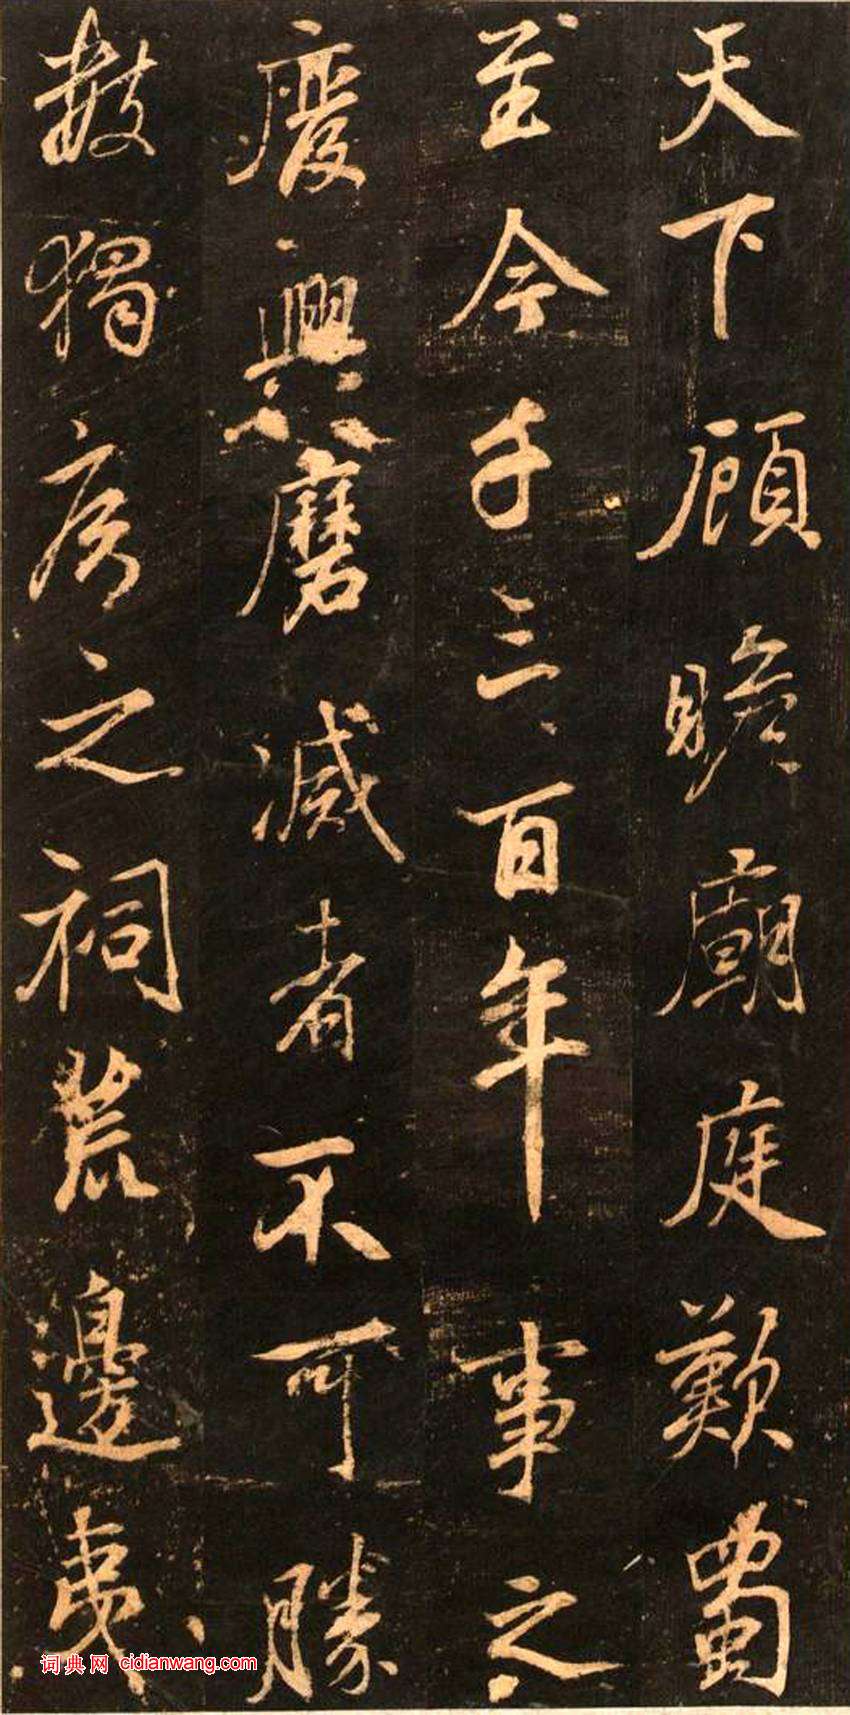 天下顧瞻廟庭歎蜀
至今千三百年事之
廢興磨滅者不可勝
數獨房之祠荒邊夷
词典网 cidianwang.com